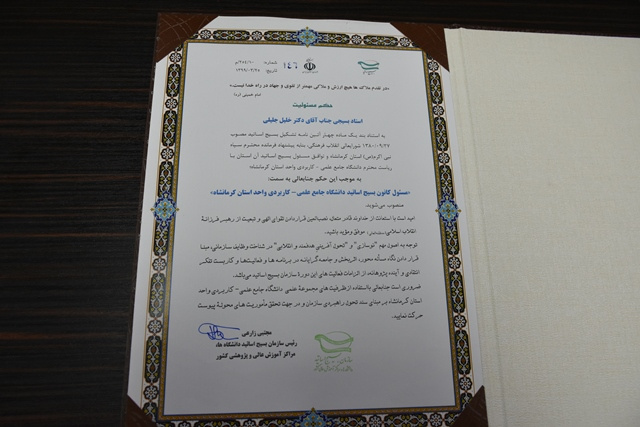 شماره: ۳۸۴/۱۰/م
۱۴۶
تاریخ: ۱۳۹۹/۰۳/۲۸
«در تقدم ملاک ها هیچ ارزش و ملاکی مهمتر از تقوی و جهاد در راه خدا نیست.»
امام خمینی (ره)
حکم مسئولیت
استاد بسیجی جناب آقای دکتر خلیل جلیلی
به استناد بند یک ماده چهار آئین نامه تشکیل بسیج اساتید مصوب
۱۳۸۰/۰۹/۲۷ شورایعالی انقلاب فرهنگی، بنابه پیشنهاد فرمانده محترم سپاه
نبی اکرم(ص) استان کرمانشاه و توافق مسئول بسیج اساتید آن استان با
ریاست محترم دانشگاه جامع علمی - کاربردی واحد استان کرمانشاه؛
به موجب این حکم جنابعالی به سمت:
«مسئول کانون بسیج اساتید دانشگاه جامع علمی- کاربردی واحد استان کرمانشاه»
منصوب می‌شوید.
امید است با استعانت از خداوند قادر متعال، نصب‌العین قرار دادن تقوای الهی و تبعیت از رهبر فرزانهٔ
انقلاب اسلامی، موفق و مؤید باشید.
توجه به اصول مهم "نوسازی" و "تحول آفرینی هدفمند و انقلابی" در شناخت وظایف سازمانی، مبنا
قرار دادن نگاه مسأله محور، اثربخش و جامعه گرایانه در برنامه ها و فعالیت‌ها و کاربست تفکر
انتقادی و آینده پژوهانه، از الزامات فعالیت های این دورهٔ سازمان بسیج اساتید می‌باشد.
ضروری است جنابعالی با استفاده از ظرفیت های مجموعهٔ علمی دانشگاه جامع علمی- کاربردی واحد
استان کرمانشاه بر مبنای سند تحول راهبردی سازمان و در جهت تحقق مأموریت های محولهٔ پیوست
حرکت نمایید.
مجتبی زارعی
رئیس سازمان بسیج اساتید دانشگاه ها،
مراکز آموزش عالی و پژوهشی کشور